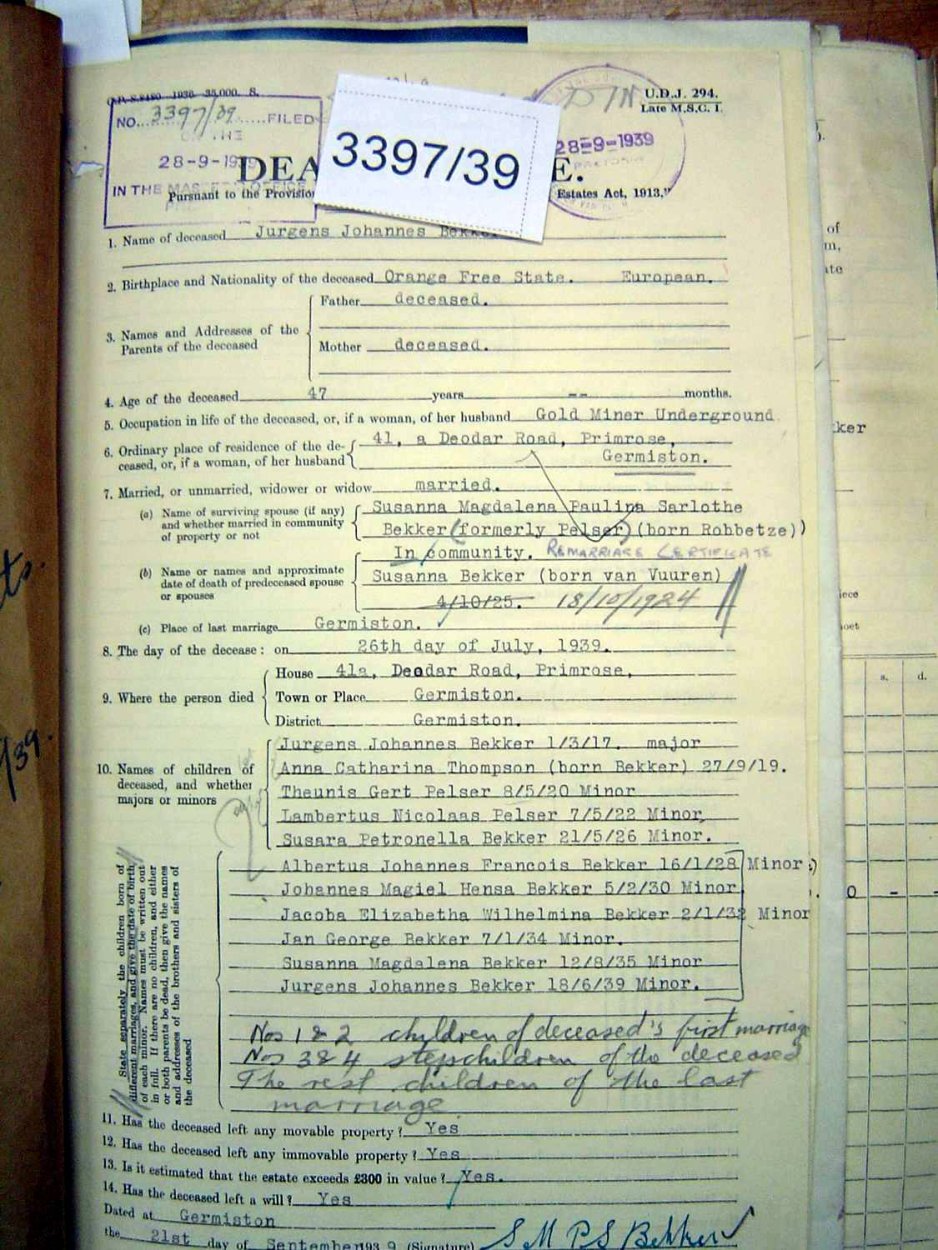 O.D.-S.8480—1936—35,000. S.
U.D.J. 294.
Late M.S.C. I.
NO. 3397/39 FILED
28-9-1939
IN THE MASTER'S OFFICE
3397/39
28-9-1939
DEA E.
Pursuant to the Provision Estates Act, 1913."
1. Name of deceased Jurgens Johannes Bekker
2. Birthplace and Nationality of the deceased Orange Free State. European.
3. Names and Addresses of the Parents of the deceased
Father deceased.
Mother deceased.
4. Age of the deceased 47 years -- months.
5. Occupation in life of the deceased, or, if a woman, of her husband Gold Miner Underground
6. Ordinary place of residence of the de-
ceased, or, if a woman, of her husband
41, a Deodar Road, Primrose,
Germiston.
7. Married, or unmarried, widower or widow married.
(a) Name of surviving spouse (if any)
and whether married in community
of property or not
Susanna Magdalena Paulina Sarlothe
Bekker (formerly Pelser) (born Robbetze))
In community. REMARRIAGE CERTIFICATE
(b) Name or names and approximate
date of death of predeceased spouse
or spouses
Susanna Bekker (born van Vuuren)
4/10/25. 18/10/1924
(c) Place of last marriage Germiston.
8. The day of the decease: on 26th day of July, 1939.
9. Where the person died
House 41a, Deodar Road, Primrose,
Town or Place Germiston.
District Germiston.
10. Names of children of
deceased, and whether
majors or minors
Jurgens Johannes Bekker 1/3/17. major
Anna Catharina Thompson (born Bekker) 27/9/19.
Theunis Gert Pelser 8/5/20 Minor
Lambertus Nicolaas Pelser 7/5/22 Minor
Susara Petronella Bekker 21/5/26 Minor.
State separately the children born of
different marriages, and give the date of birth
of each minor. Names must be written out
in full. If there are no children, and either
or both parents be dead, then give the names
and addresses of the brothers and sisters of
the deceased
Albertus Johannes Francois Bekker 16/1/28 Minor.)
Johannes Magiel Hensa Bekker 5/2/30 Minor
Jacoba Elizabetha Wilhelmina Bekker 2/1/32 Minor
Jan George Bekker 7/1/34 Minor.
Susanna Magdalena Bekker 12/8/35 Minor
Jurgens Johannes Bekker 18/6/39 Minor.
Nos 1 & 2 children of deceased's first marriage
Nos 3 & 4 stepchildren of the deceased
The rest children of the last
marriage
11. Has the deceased left any movable property? Yes
12. Has the deceased left any immovable property? Yes
13. Is it estimated that the estate exceeds £300 in value? Yes.
14. Has the deceased left a will? Yes
Dated at Germiston
the 21st day of September 1939 (Signature) S M P S Bekker
of
kker
s. d.
0 - -
/39.